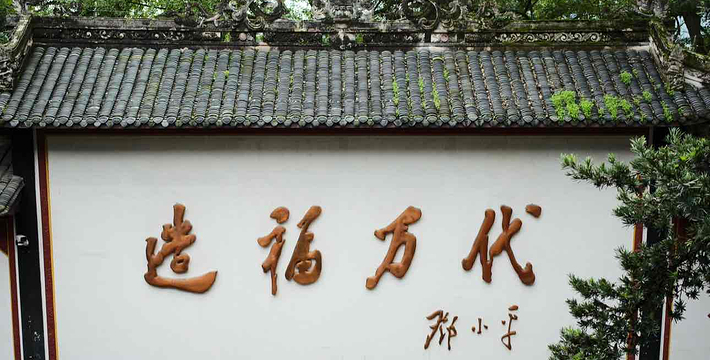 造福万代
邓小平